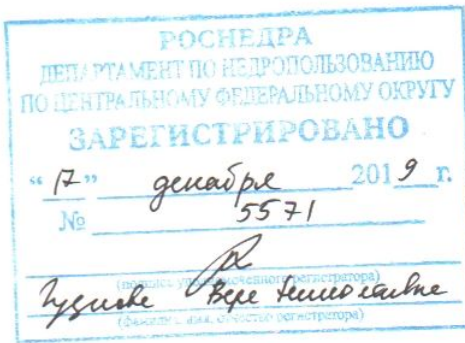 РОСНЕДРА
ДЕПАРТАМЕНТ ПО НЕДРОПОЛЬЗОВАНИЮ
ПО ЦЕНТРАЛЬНОМУ ФЕДЕРАЛЬНОМУ ОКРУГУ
ЗАРЕГИСТРИРОВАНО
“17” декабря 2019 г.
№ 5571
(подпись уполномоченного регистратора)
Вере Николаевне
(фамилия, имя, отчество регистратора)